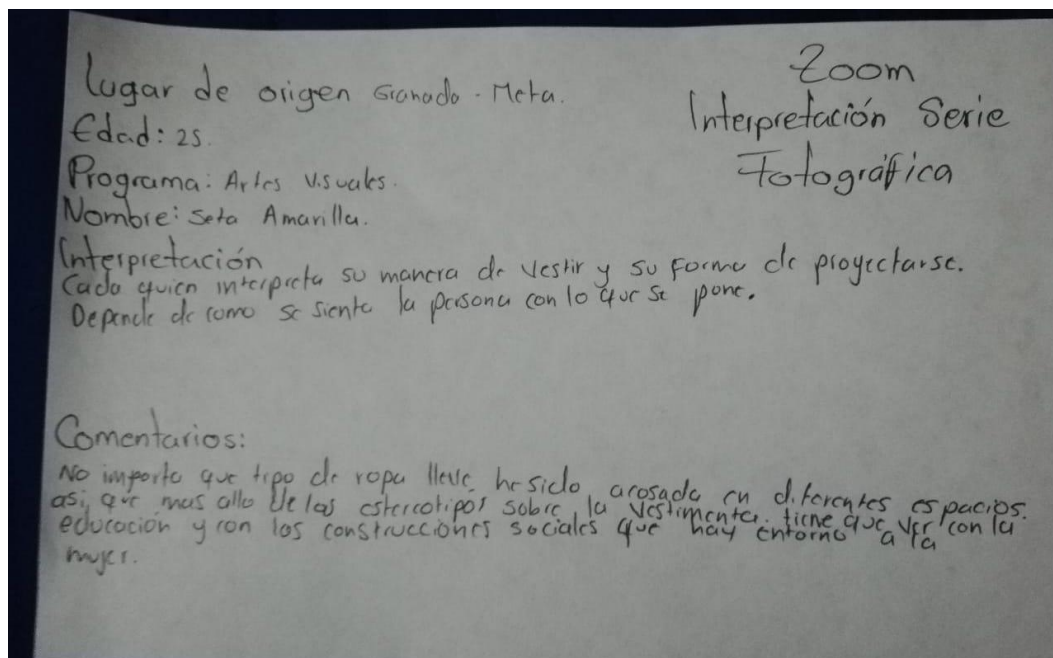 Zoom
Interpretación Serie
Fotográfica
Lugar de origen Granada - Meta.
Edad: 25.
Programa: Artes Visuales.
Nombre: Seta Amarilla.
Interpretación
Cada quien interpreta su manera de vestir y su forma de proyectarse.
Depende de como se sienta la persona con lo que se pone.
Comentarios:
No importa que tipo de ropa lleve, he sido acosada en diferentes espacios.
asi, que mas alla de las estereotipos sobre la vestimenta. tiene que ver con la
educacion y con las construcciones sociales que hay entorno a la
mujer.